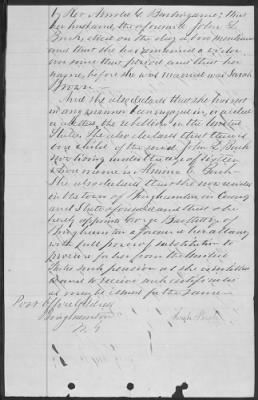 by Rev. Arnold G. Burlingame; that
her husband, the aforesaid John L.
Buck, died on the day above mentioned
and that she has remained a widow
ever since that period and that her
name, before she was married was Sarah
Brown
And she also declares that she has not
in any manner been engaged in, or aided
or abetted, the rebellion in the United
States. She also declares that there is
but a child of the said John L. Buck
now living under the age of sixteen
whose name is Emma C. Buck
She also declares that she now resides
in the town of Binghamton in County
and State aforesaid and that she
hereby appoints George Bartlett of
Binghamton aforesaid her attorney
with full power of substitution to
procure for her from the United
States such pension as she is entitled
to and to receive such certificate
as may be issued for the same
Post Office Address
Binghamton
N. Y.
Sarah Buck